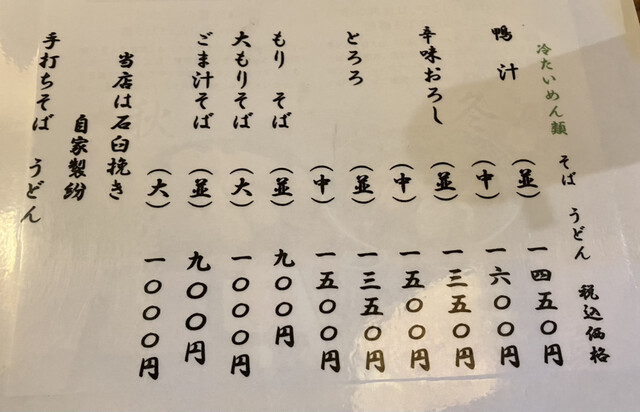 冷たいめん類 そば うどん 税込価格
鴨汁 (並) 一四五〇円
(中) 一六〇〇円
辛味おろし (並) 一三五〇円
(中) 一五〇〇円
とろろ (並) 一三五〇円
(中) 一五〇〇円
もり そば (並) 九〇〇円
大もりそば (大) 一〇〇〇円
ごま汁そば (並) 九〇〇円
(大) 一〇〇〇円
当店は石臼挽き
自家製紛
手打ちそば うどん